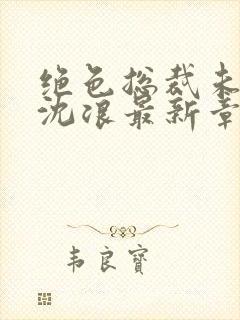 绝色总裁未
沈浪最新章
韦良宝